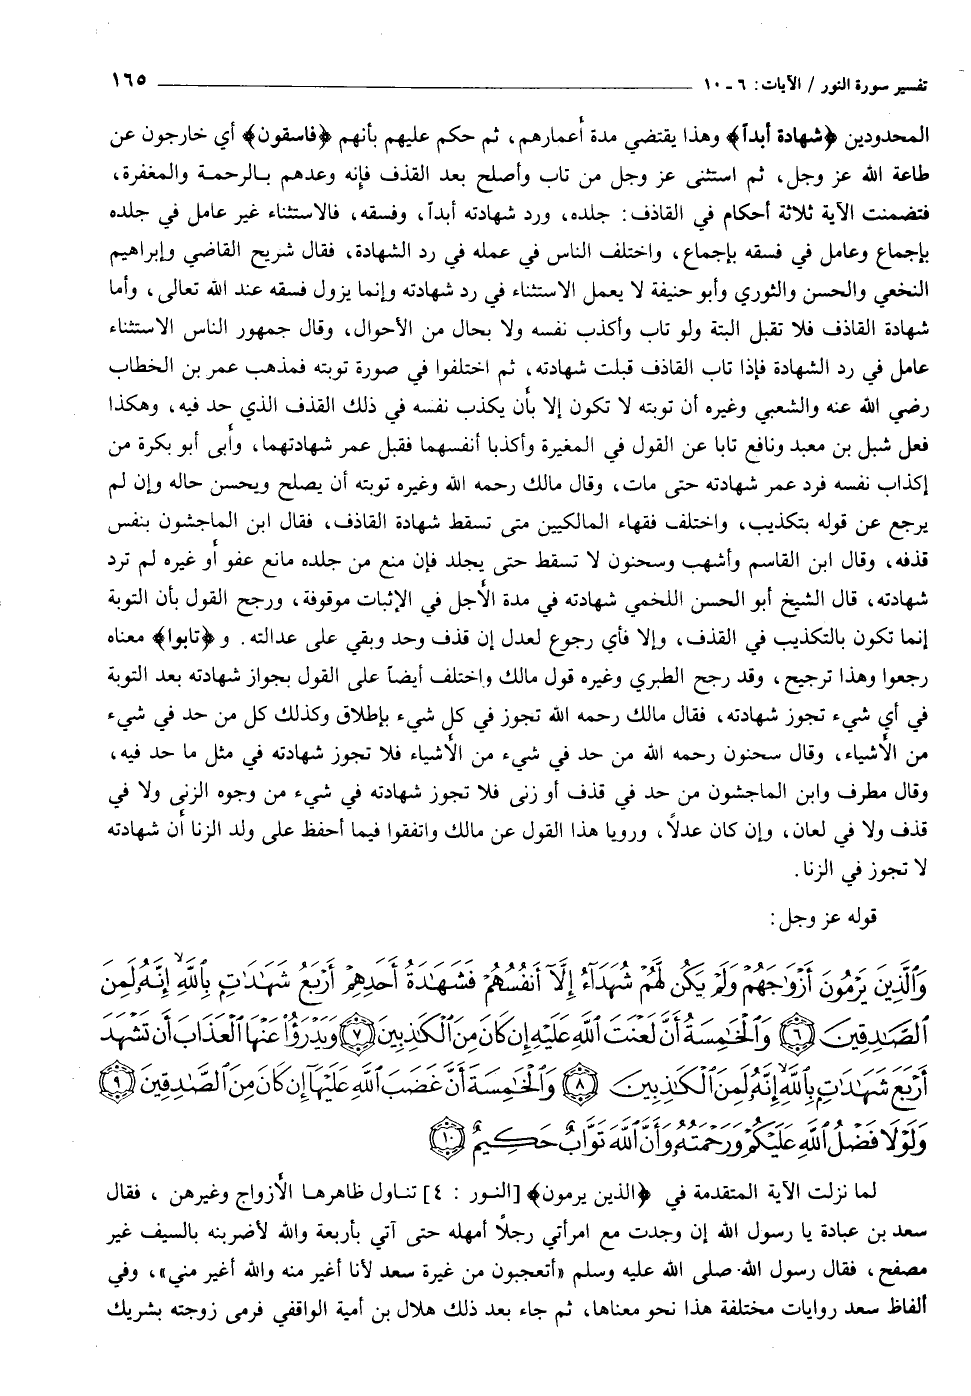 تفسير سورة النور / الآيات: ٦ - ١٠ ١٦٥
المحدودين ﴿شهادة أبداً﴾ وهذا يقتضي مدة أعمارهم، ثم حكم عليهم بأنهم ﴿فاسقون﴾ أي خارجون عن
طاعة الله عز وجل، ثم استثنى عز وجل من تاب وأصلح بعد القذف فإنه وعدهم بالرحمة والمغفرة،
فتضمنت الآية ثلاثة أحكام في القاذف: جلده، ورد شهادته أبداً، وفسقه، فالاستثناء غير عامل في جلده
بإجماع وعامل في فسقه بإجماع، واختلف الناس في عمله في رد الشهادة، فقال شريح القاضي وإبراهيم
النخعي والحسن والثوري وأبو حنيفة لا يعمل الاستثناء في رد شهادته وإنما يزول فسقه عند الله تعالى، وأما
شهادة القاذف فلا تقبل البتة ولو تاب وأكذب نفسه ولا بحال من الأحوال، وقال جمهور الناس الاستثناء
عامل في رد الشهادة فإذا تاب القاذف قبلت شهادته، ثم اختلفوا في صورة توبته فمذهب عمر بن الخطاب
رضي الله عنه والشعبي وغيره أن توبته لا تكون إلا بأن يكذب نفسه في ذلك القذف الذي حد فيه، وهكذا
فعل شبل بن معبد ونافع تابا عن القول في المغيرة وأكذبا أنفسهما فقبل عمر شهادتهما، وأبى أبو بكرة من
إكذاب نفسه فرد عمر شهادته حتى مات، وقال مالك رحمه الله وغيره توبته أن يصلح ويحسن حاله وإن لم
يرجع عن قوله بتكذيب، واختلف فقهاء المالكيين متى تسقط شهادة القاذف، فقال ابن الماجشون بنفس
قذفه، وقال ابن القاسم وأشهب وسحنون لا تسقط حتى يجلد فإن منع من جلده مانع عفو أو غيره لم ترد
شهادته، قال الشيخ أبو الحسن اللخمي شهادته في مدة الأجل في الإثبات موقوفة، ورجح القول بأن التوبة
إنما تكون بالتكذيب في القذف، وإلا فأي رجوع لعدل إن قذف وحد وبقي على عدالته. و ﴿تابوا﴾ معناه
رجعوا وهذا ترجيح، وقد رجح الطبري وغيره قول مالك واختلف أيضاً على القول بجواز شهادته بعد التوبة
في أي شيء تجوز شهادته، فقال مالك رحمه الله تجوز في كل شيء بإطلاق وكذلك كل من حد في شيء
من الأشياء، وقال سحنون رحمه الله من حد في شيء من الأشياء فلا تجوز شهادته في مثل ما حد فيه،
وقال مطرف وابن الماجشون من حد في قذف أو زنى فلا تجوز شهادته في شيء من وجوه الزنى ولا في
قذف ولا في لعان، وإن كان عدلاً، ورويا هذا القول عن مالك واتفقوا فيما أحفظ على ولد الزنا أن شهادته
لا تجوز في الزنا.
قوله عز وجل:
وَالَّذِينَ يَرْمُونَ أَزْوَاجَهُمْ وَلَمْ يَكُن لَّهُمْ شُهَدَاءُ إِلَّا أَنفُسُهُمْ فَشَهَادَةُ أَحَدِهِمْ أَرْبَعُ شَهَادَاتٍ بِاللَّهِ إِنَّهُ لَمِنَ
الصَّادِقِينَ ﴿٦﴾ وَالْخَامِسَةُ أَنَّ لَعْنَتَ اللَّهِ عَلَيْهِ إِن كَانَ مِنَ الْكَاذِبِينَ ﴿٧﴾ وَيَدْرَؤُا عَنْهَا الْعَذَابَ أَن تَشْهَدَ
أَرْبَعَ شَهَادَاتٍ بِاللَّهِ إِنَّهُ لَمِنَ الْكَاذِبِينَ ﴿٨﴾ وَالْخَامِسَةَ أَنَّ غَضَبَ اللَّهِ عَلَيْهَا إِن كَانَ مِنَ الصَّادِقِينَ ﴿٩﴾
وَلَوْلَا فَضْلُ اللَّهِ عَلَيْكُمْ وَرَحْمَتُهُ وَأَنَّ اللَّهَ تَوَّابٌ حَكِيمٌ ﴿١٠﴾
لما نزلت الآية المتقدمة في ﴿الذين يرمون﴾ [النور : ٤] تناول ظاهرها الأزواج وغيرهن ، فقال
سعد بن عبادة يا رسول الله إن وجدت مع امرأتي رجلاً أمهله حتى آتي بأربعة والله لأضربنه بالسيف غير
مصفح، فقال رسول الله صلى الله عليه وسلم «أتعجبون من غيرة سعد لأنا أغير منه والله أغير مني»، وفي
ألفاظ سعد روايات مختلفة هذا نحو معناها، ثم جاء بعد ذلك هلال بن أمية الواقفي فرمى زوجته بشريك